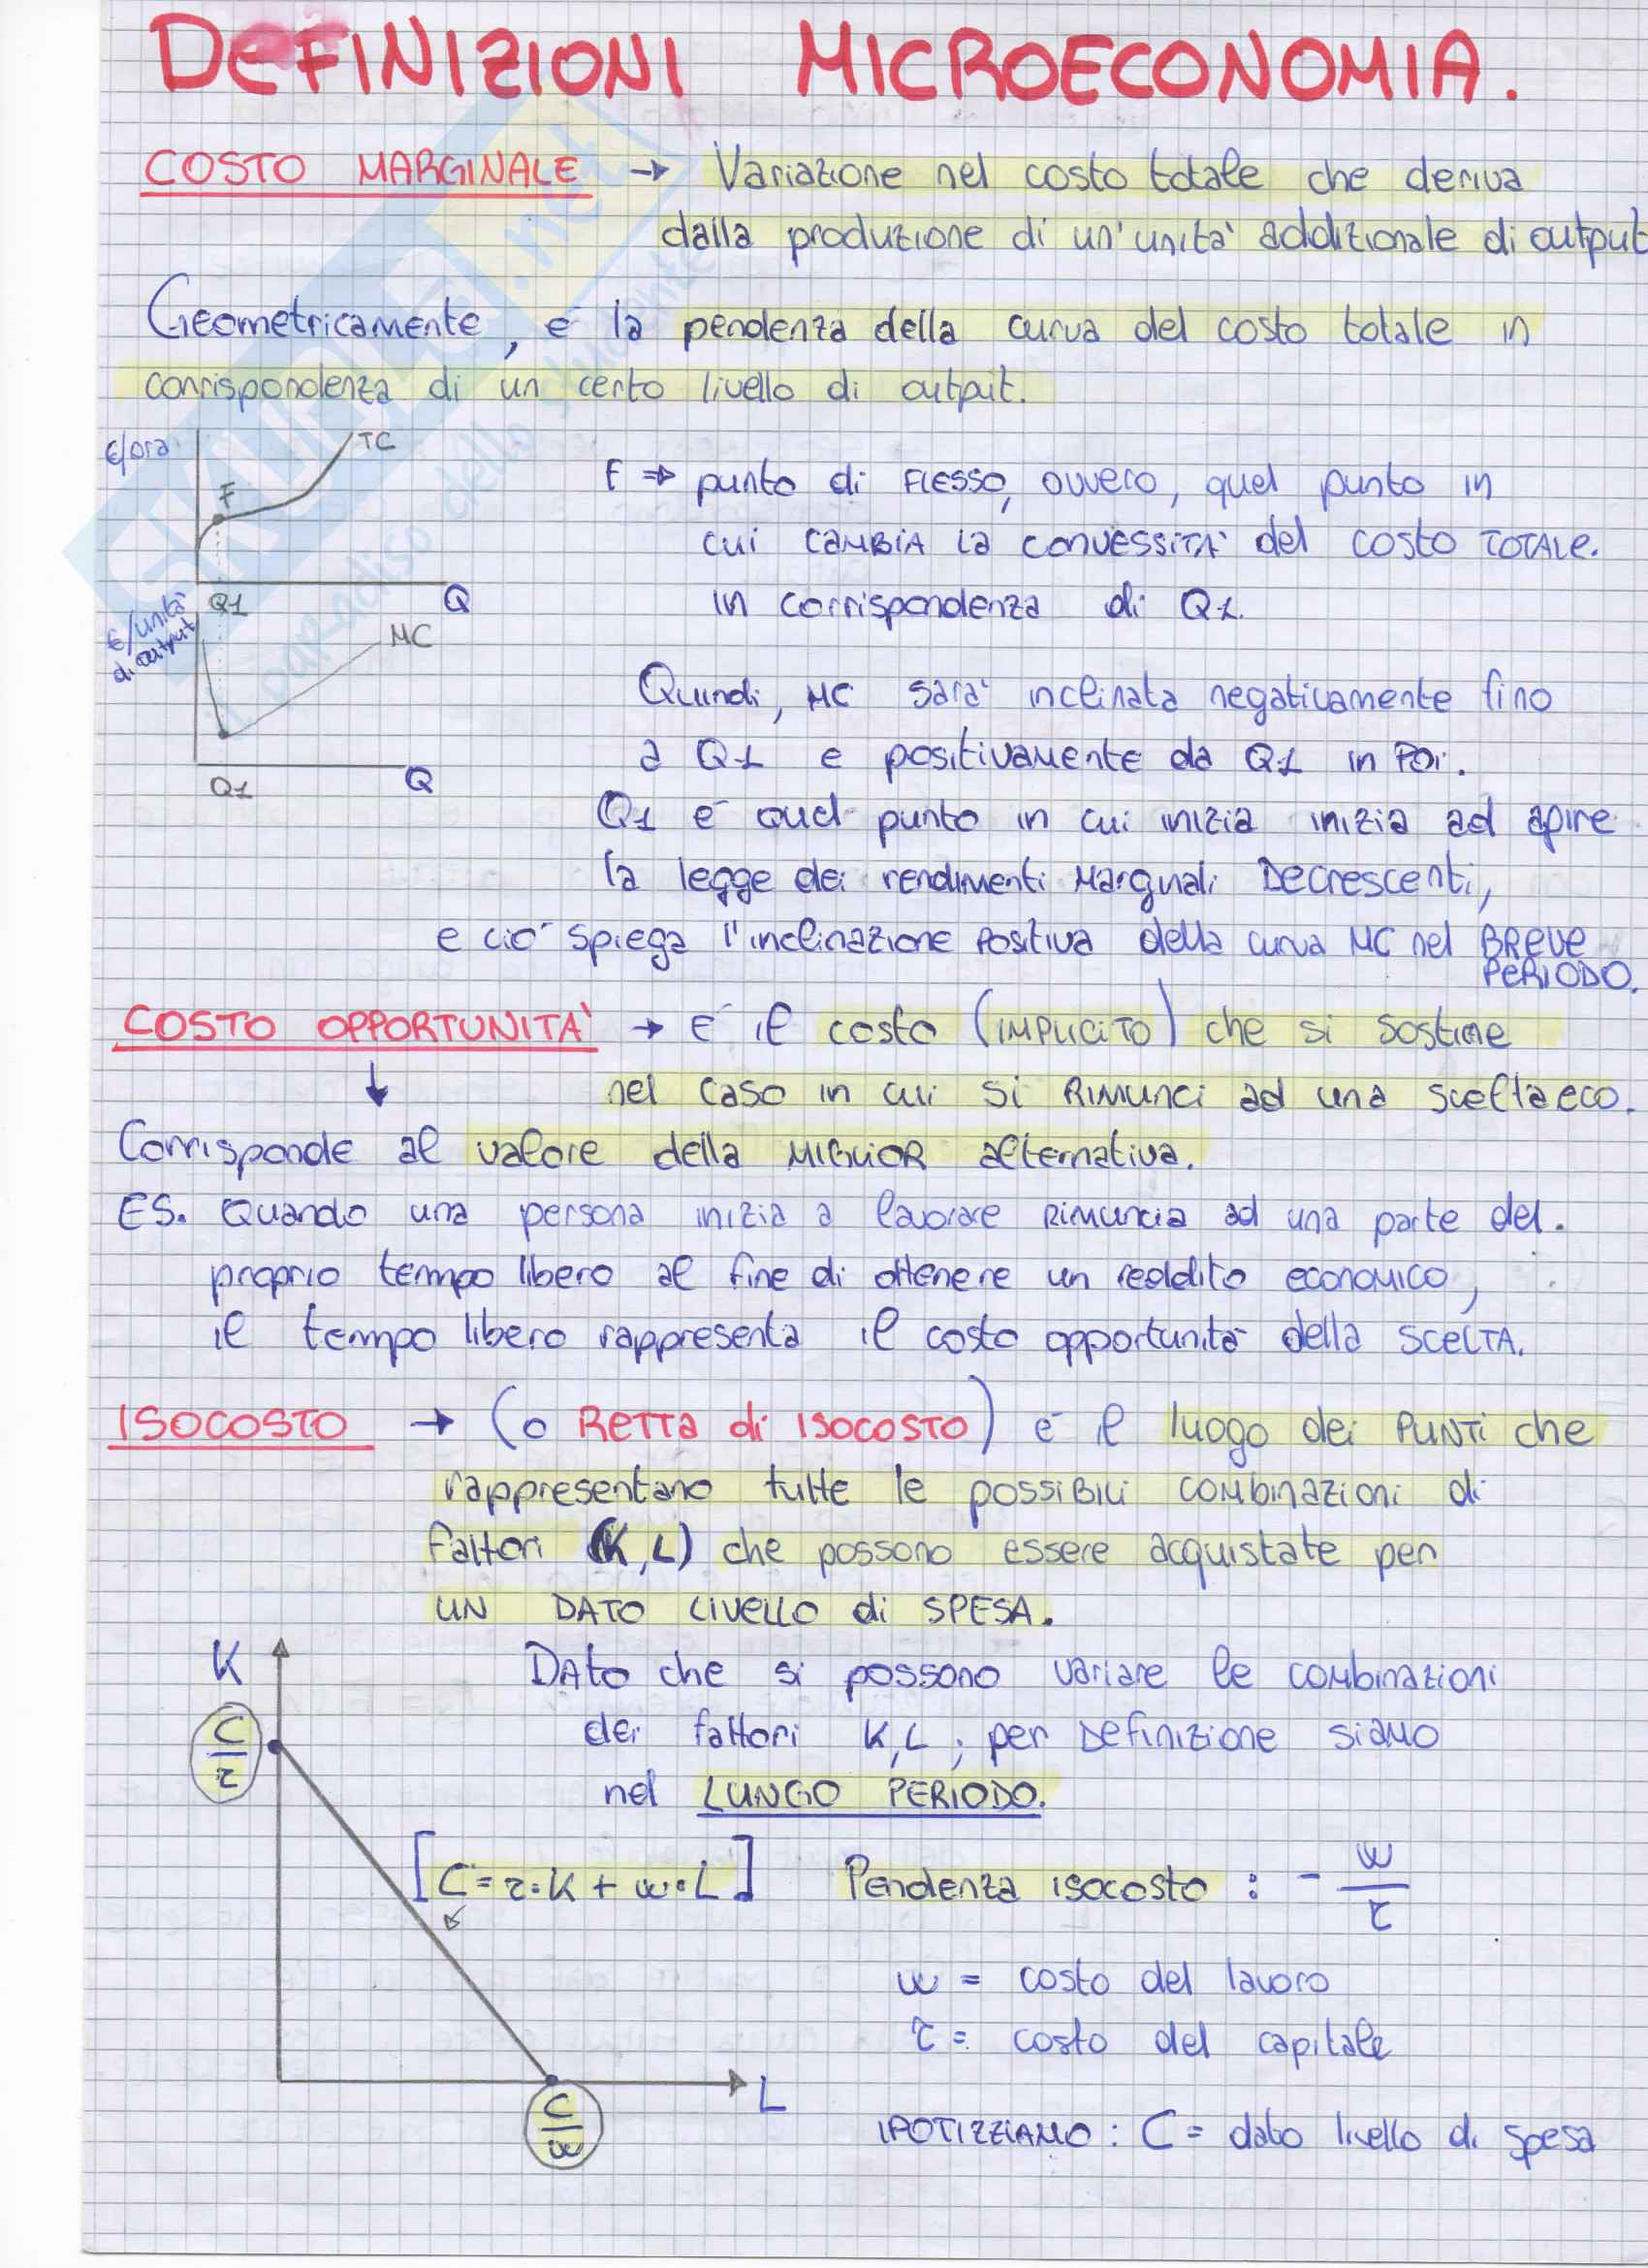 DEFINIZIONI MICROECONOMIA.
COSTO MARGINALE → Variazione nel costo totale che deriva
dalla produzione di un'unità addizionale di output
Geometricamente, è la pendenza della curva del costo totale in
corrispondenza di un certo livello di output.
€/ora
TC
F
Q1
Q
€/unità
di output
MC
Q1
Q
F ⇒ punto di FLESSO, ovvero, quel punto in
cui CAMBIA LA CONVESSITÀ del COSTO TOTALE.
IN corrispondenza di Q1.
Quindi, MC sarà inclinata negativamente fino
a Q1 e positivamente da Q1 in POI.
Q1 è quel punto in cui inizia inizia ad agire
la legge dei rendimenti Marginali Decrescenti,
e ciò spiega l'inclinazione Positiva della curva MC nel BREVE
PERIODO.
COSTO OPPORTUNITA' → È il costo (IMPLICITO) che si sostiene
nel caso in cui si RINUNCI ad una scelta eco.
↓
Corrisponde al valore della MIGLIOR alternativa.
ES. Quando una persona inizia a lavorare rinuncia ad una parte del
proprio tempo libero al fine di ottenere un reddito economico,
il tempo libero rappresenta il costo opportunità della SCELTA.
ISOCOSTO → (o Retta di ISOCOSTO) è il luogo dei PUNTI che
rappresentano tutte le possibili combinazioni di
fattori (K,L) che possono essere acquistate per
UN DATO LIVELLO di SPESA.
K
C/r
DATO che si possono variare le combinazioni
dei fattori K,L, per Definizione siamo
nel LUNGO PERIODO.
[C=r·K + w·L] Pendenza isocosto : - w/r
w = costo del lavoro
r = costo del capitale
L
C/w
IPOTIZZIAMO : C = dato livello di spesa
SKUOLA.net
paradiso dello studente